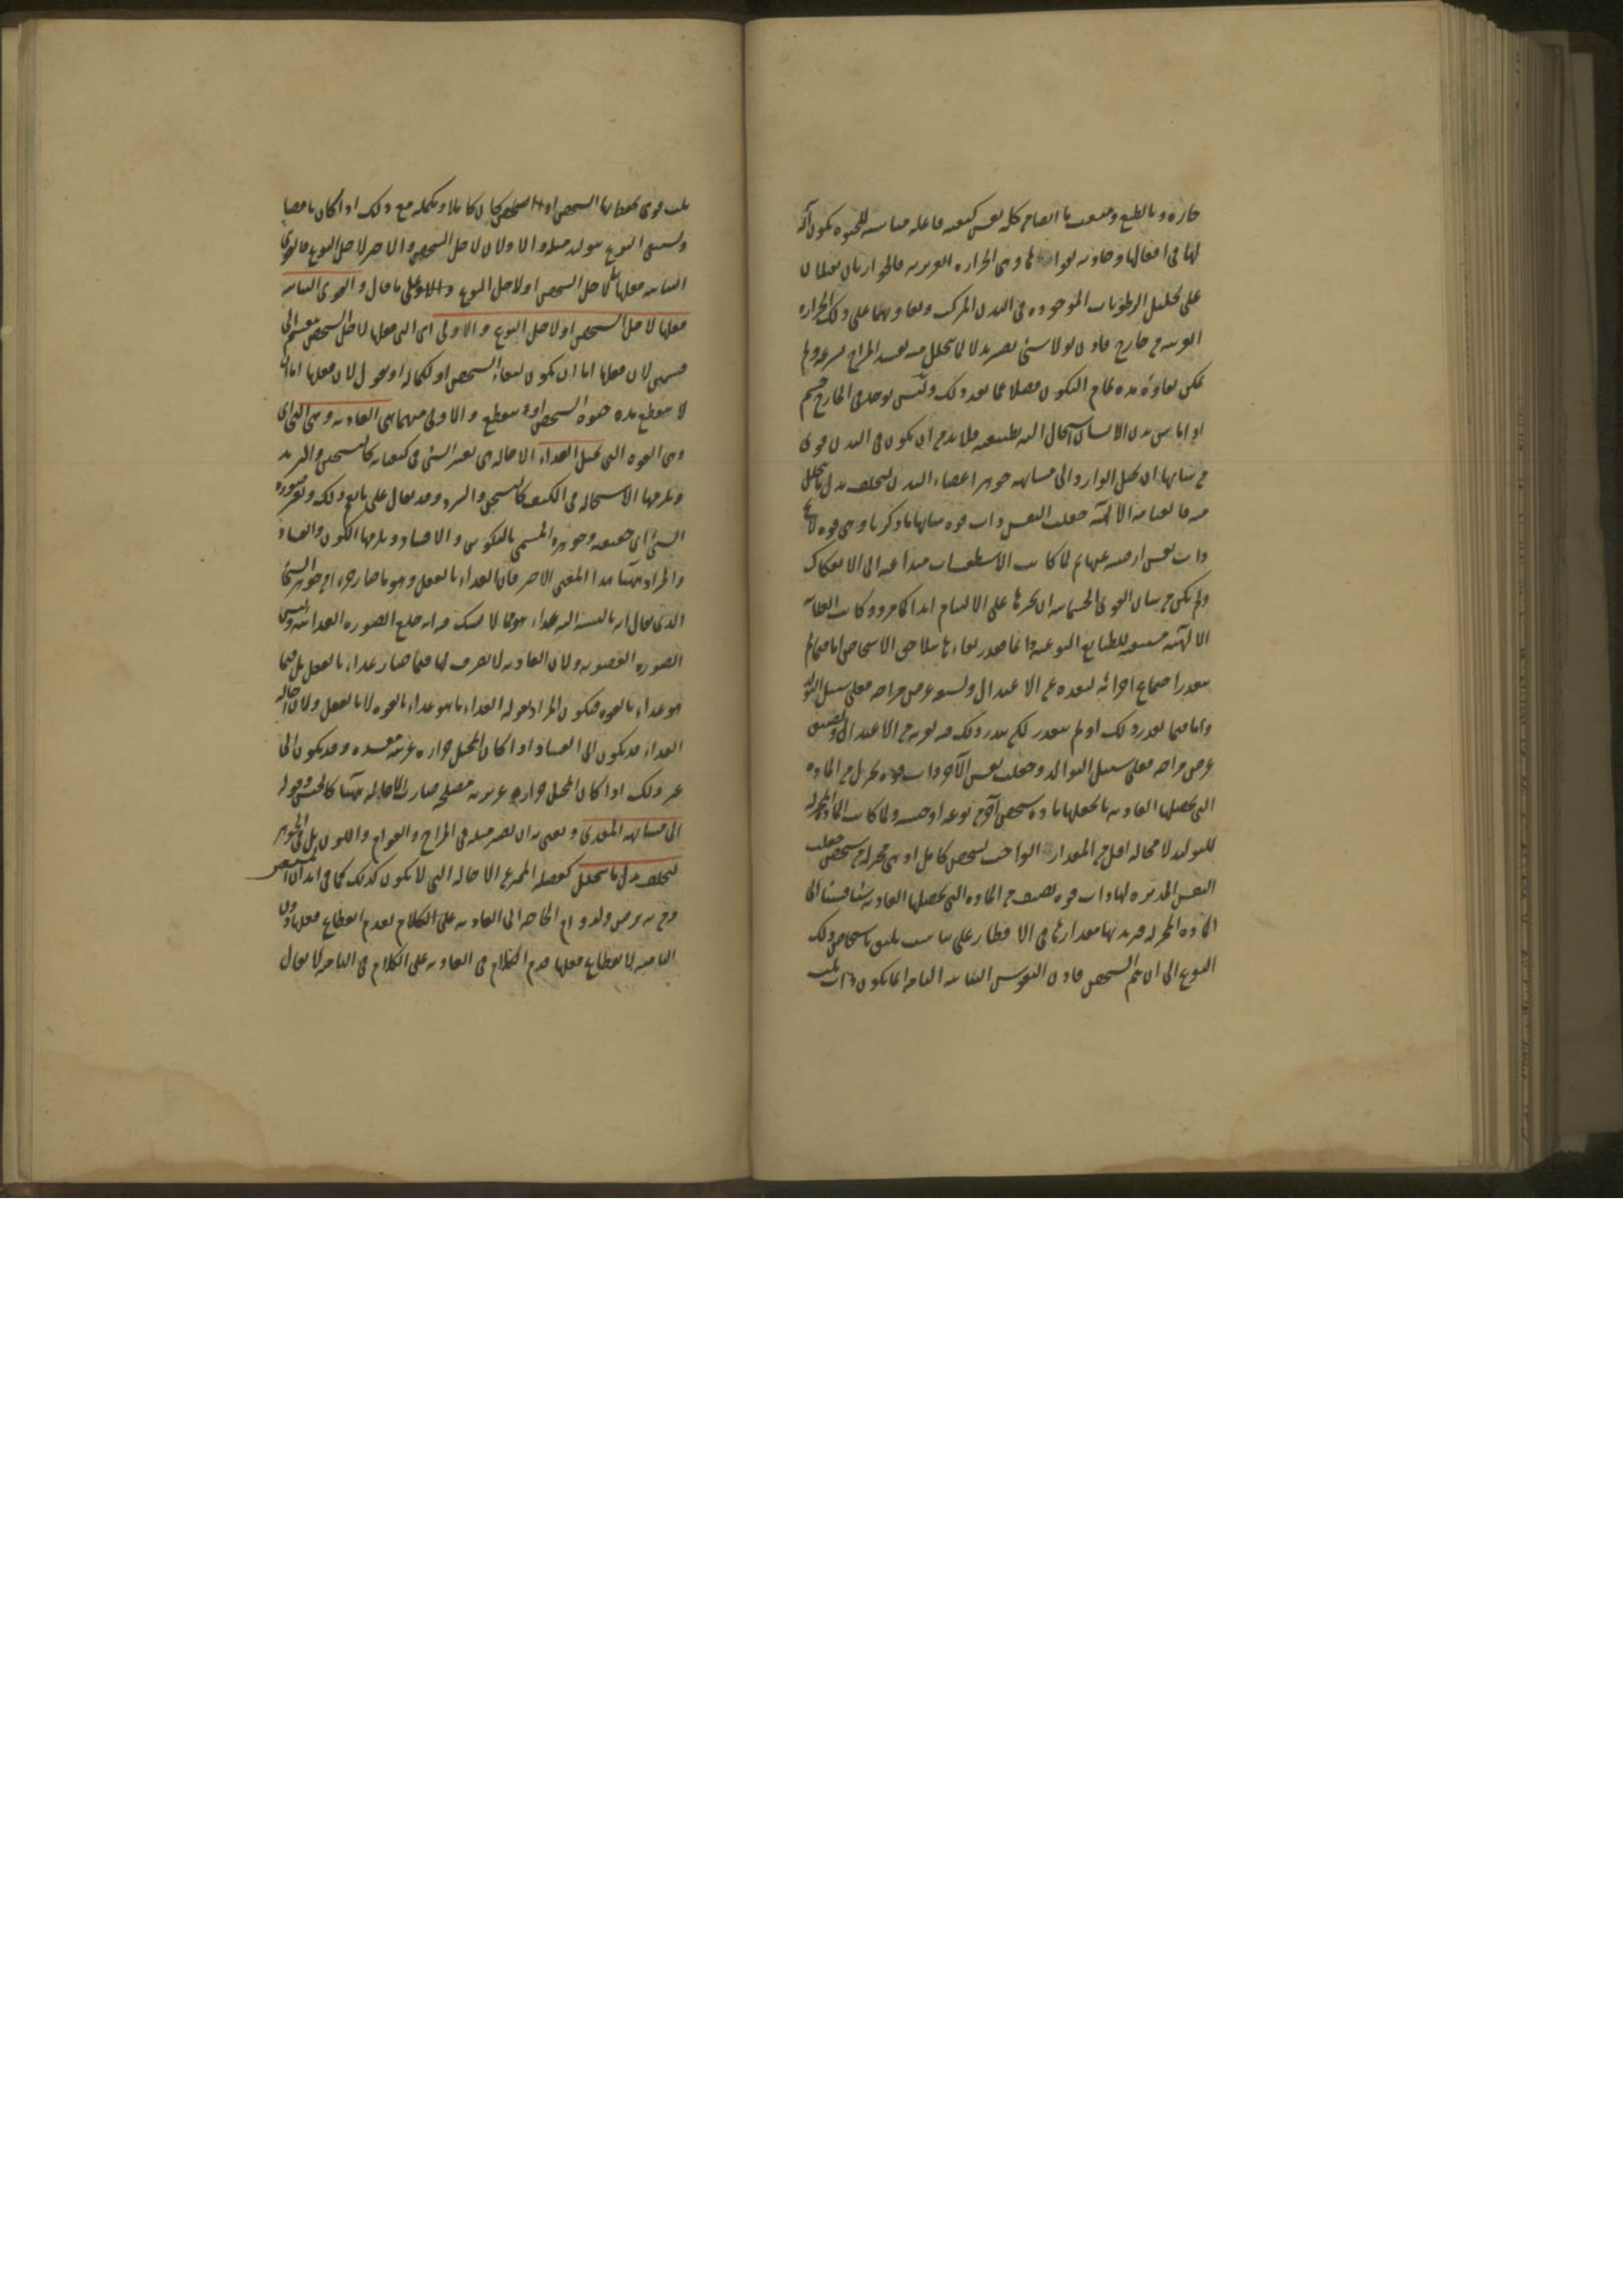 حارة وبالطبع ومنبعث بانضمام كل نفس كيفية فاعلة مناسبة للحيوة تكون آلة
لها في افعالها وخادمة لقواها وهي الحرارة الغريزية فالحرارتان تقبلان
على تحليل الرطوبات الموجودة في البدن المركب وتعاونهما على ذلك الحرارة
الغريبة من خارج فاذن لولا شئ يصير بدلا لما يتحلل منه لفسد المزاج بسرعة ولم
يمكن بقاؤه مدة تمام التكون فضلا عما بعد ذلك وليس يوجد في الخارج جسم
اذا ماس بدن الانسان استحال اليه بطبيعته فلا بد من ان يكون في البدن قوى
من شانها ان تحيل الوارد الى مشابهة جوهر اعضاء البدن ليخلف بدل ما يتحلل
منه فالعناية الالهية جعلت النفس ذات قوة شانها ما ذكرنا وهي قوة لا
ذات نفس ارضية عنها ثم لما كانت الاسطقسات متداعية الى الانفكاك
ولم يكن من شان القوى الجسمانية ان تجبرها على الالتيام ابدا كما مر وكانت العناية
الالهية مستبقية للطبايع النوعية دائما فقدر بقاءها بتلاحق الاشخاص اما فيما لم
يتعذر اجتماع اجزائه لبعده عن الاعتدال ولسعة عرض مزاجه فعلى سبيل التولد
واما فيما تعذر ذلك او لم يتعذر لكن يندر ذلك فيه لقربه من الاعتدال ولضيق
عرض مزاجه فعلى سبيل التوالد وجعلت نفس الآخر ذات قوة تختزل من المادة
التي تحصلها الغاذية ما تجعلها مادة شخص آخر من نوعه او جنسه ولما كانت المادة المختزلة
للتوليد لا محالة اقل من المقدار الواجب لشخص كامل اذ هي مختزلة من شخص جعلت
النفس المدبرة لها ذات قوة تضيف من المادة التي تحصلها الغاذية شيئا فشيئا الى
المادة المختزلة فيزيد بها مقدارها في الاقطار على تناسب يليق باشخاص ذلك
النوع الى ان يتم الشخص فاذن النفوس النباتية التامة انما يكون ذات ثلث
ثلث قوى يحفظ بها الشخص اذا كان كاملا ويكمله مع ذلك اذا كان ناقصا
ويستبقى النوع بتوليد مثله والاولان لاجل الشخص والاخر لاجل النوع فالقوى
النباتية فعلها اما لاجل الشخص او لاجل النوع على ما قال والقوى النباتية
فعلها لاجل الشخص او لاجل النوع والاولى اى التي فعلها لاجل الشخص ينقسم الى
قسمين لان فعلها اما ان يكون لبقاء الشخص او لكماله او نقول لان فعلها اما ان
لا ينقطع مدة حيوة الشخص او ينقطع والاولى منهما هي الغاذية وهي التي
وهي القوة التي تحيل الغذاء الاحالة هى تغير الشئ في كيفياته كالتسخين والتبريد
ويلزمها الاستحالة في الكيف كالتسخن والتبرد وقد يقال على ما يعم ذلك وتغير صورة
الشئ اى حقيقته وجوهره المسمى بالتكوين والافساد ويلزمها الكون والفساد
والمراد ههنا هذا المعنى الاخير فان الغذاء بالفعل وهو ما صار جزءا من جوهر الشئ
الذي يقال انه بالنسبة اليه غذاء مما لا شك فيه انه خلع الصورة الغذائية ولبس
الصورة العضوية ولان الغاذية لا تصرف لها فيما صار غذاء بالفعل بل فيما
هو غذاء بالقوة فيكون المراد بقوله الغذاء ما هو غذاء بالقوة لا بالفعل ولان احالة
الغذاء قد يكون الى الفساد اذا كان المحيل حرارة غريبة مفسدة وقد يكون الى
غير ذلك اذا كان المحيل حرارة غريزية مصلحة صارت الاحالة ههنا كالجنس وقوله
الى مشابهة المغتذى ونعنى به ان يصير مثله في المزاج والقوام واللون بل في الجوهر
ليخلف بدل ما يتحلل كفصله المميز عن الاحالة التي لا يكون كذلك كما في ابدان
الحاجة الى الغاذية على الكلام لعدم انقطاع فعلها دون
النامية لانقطاع فعلها قدم الكلام في الغاذية على الكلام في النامية لا يقال